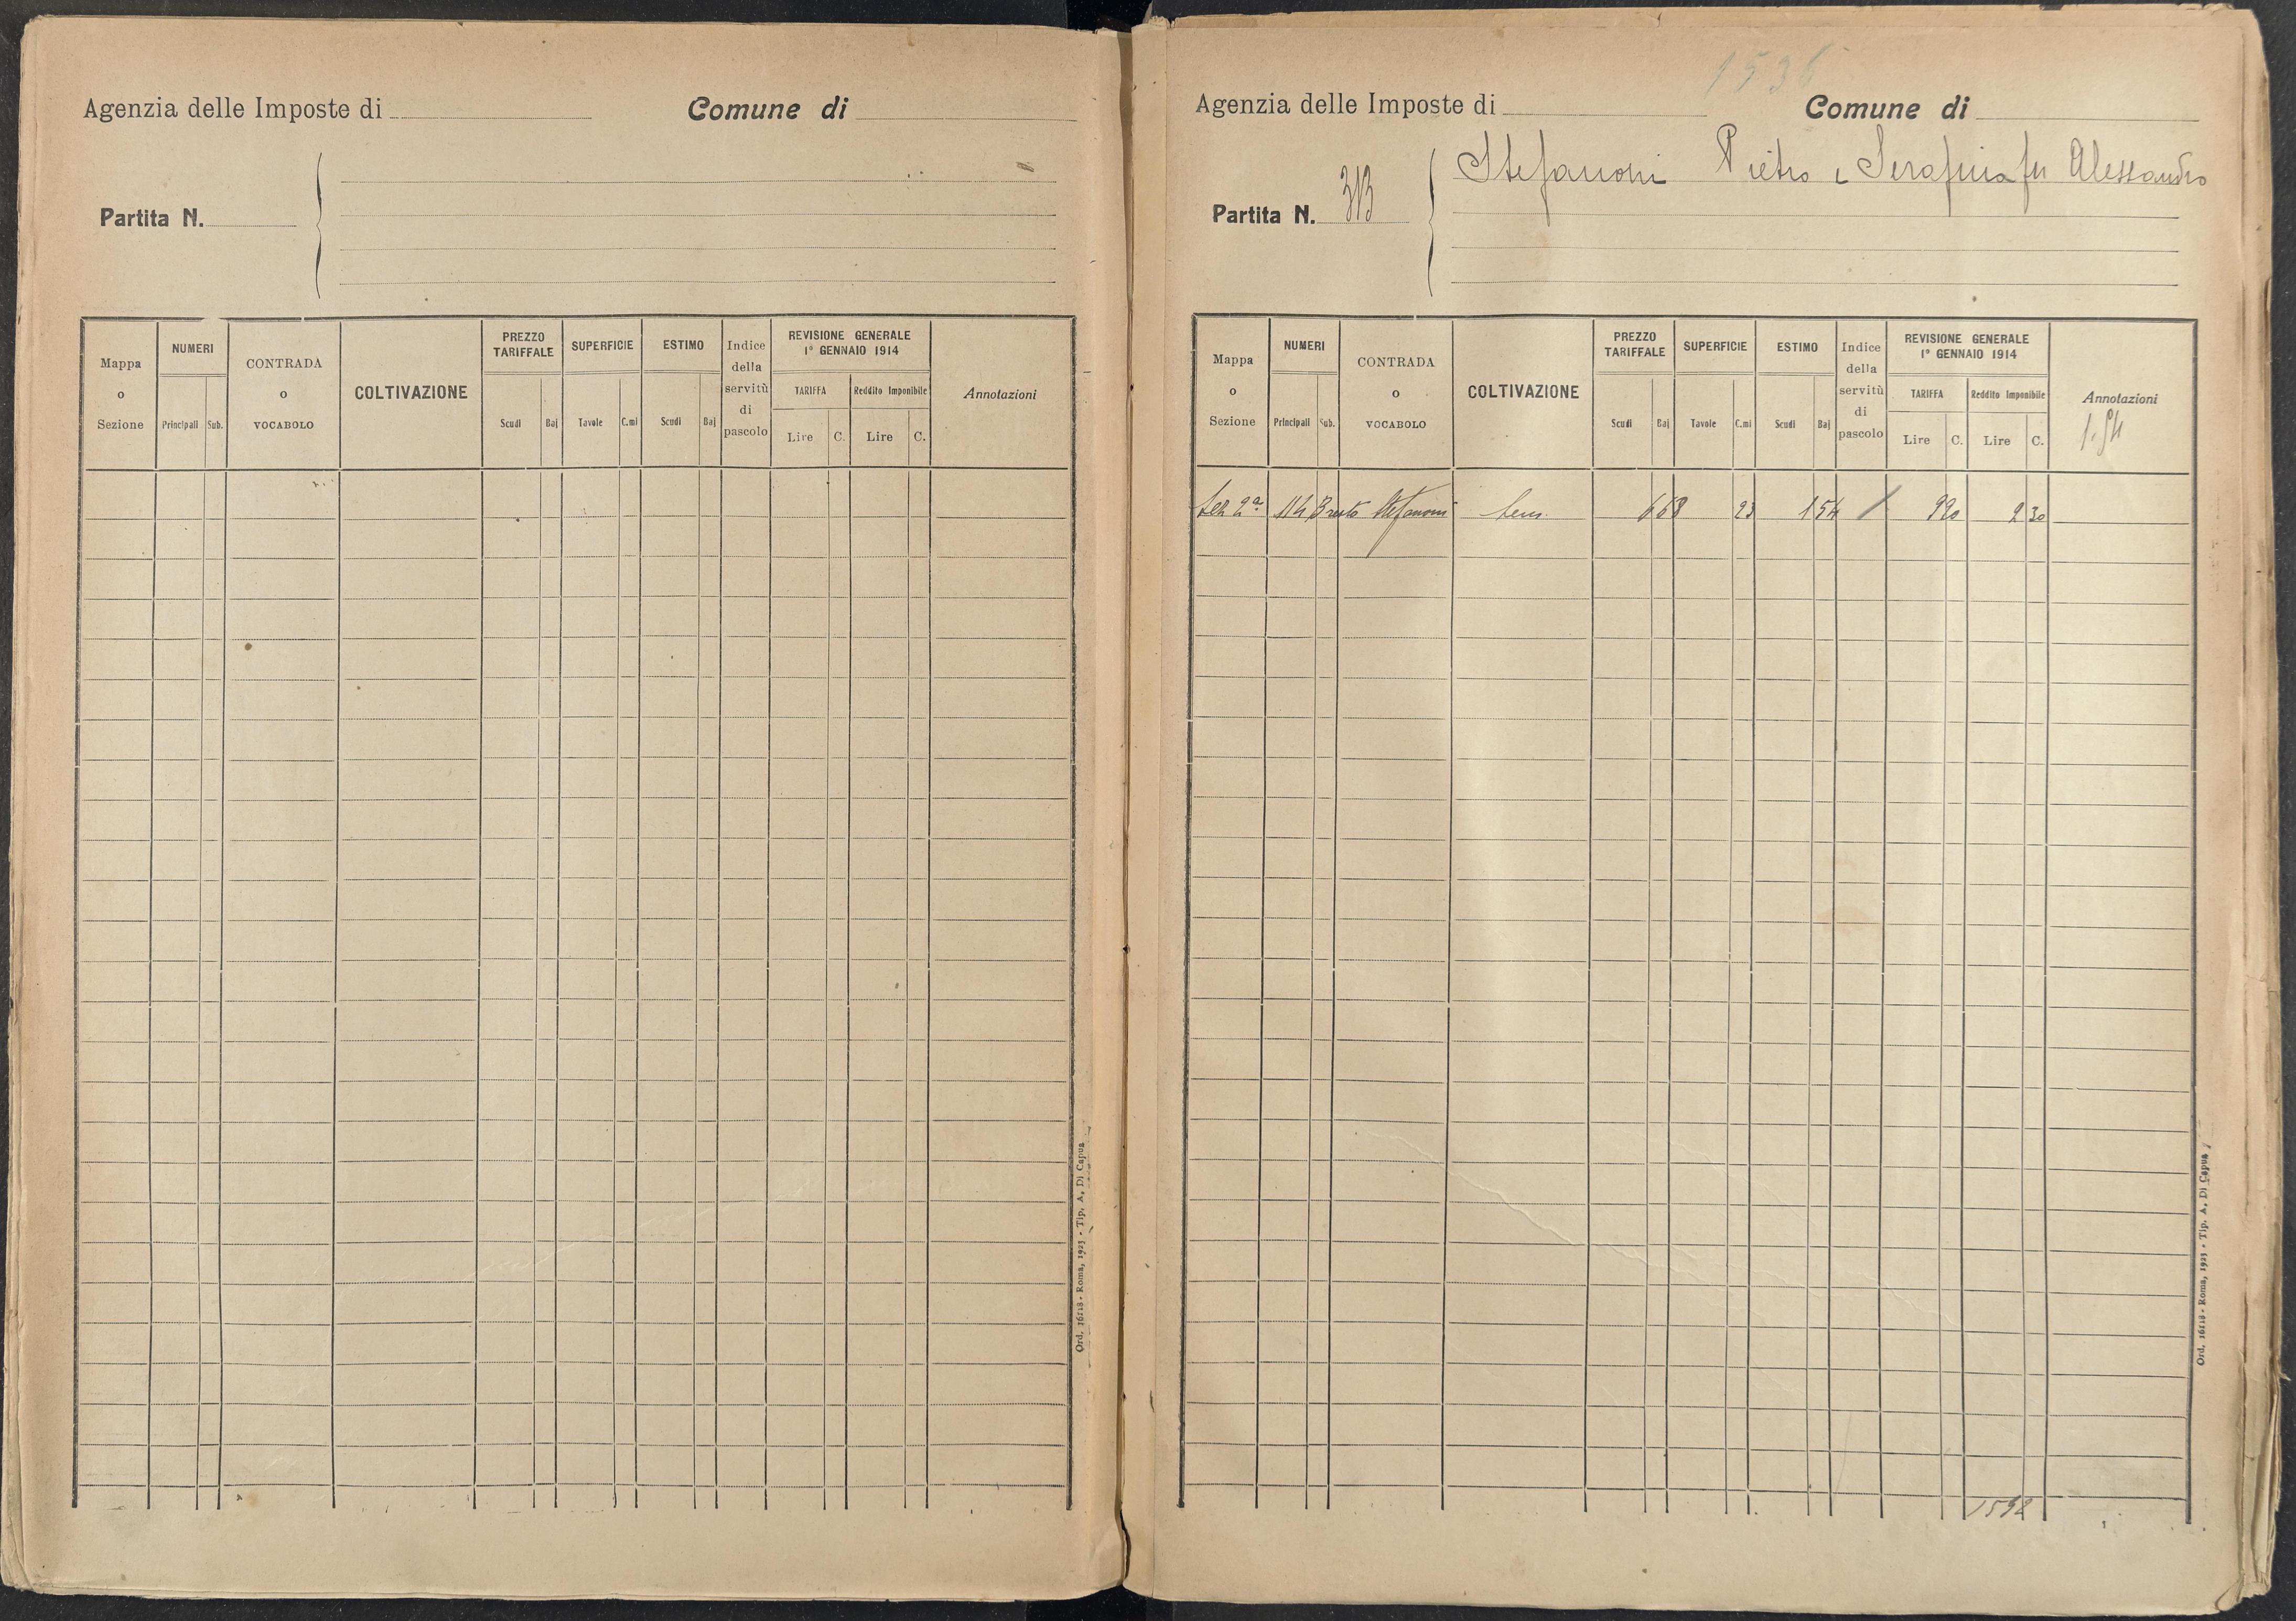 Agenzia delle Imposte di Comune di
Partita N.
Mappa o Sezione NUMERI Principali Sub. CONTRADA o VOCABOLO COLTIVAZIONE PREZZO TARIFFALE Scudi Baj SUPERFICIE Tavole C.mi ESTIMO Scudi Baj Indice della servitù di pascolo REVISIONE GENERALE 1° GENNAIO 1914 TARIFFA Lire C. Reddito Imponibile Lire C. Annotazioni
Ord. 16118 - Roma, 1923 - Tip. A. Di Capua
1536
Agenzia delle Imposte di Comune di
Stefanoni Pietro e Serafina fu Alessandro
Partita N. 313
Mappa o Sezione NUMERI Principali Sub. CONTRADA o VOCABOLO COLTIVAZIONE PREZZO TARIFFALE Scudi Baj SUPERFICIE Tavole C.mi ESTIMO Scudi Baj Indice della servitù di pascolo REVISIONE GENERALE 1° GENNAIO 1914 TARIFFA Lire C. Reddito Imponibile Lire C. Annotazioni
1.54
Sez 2ª 114 Stefanoni Sem. 668 23 154 / 990 2 30
Ord. 16118 - Roma, 1923 - Tip. A. Di Capua
1592